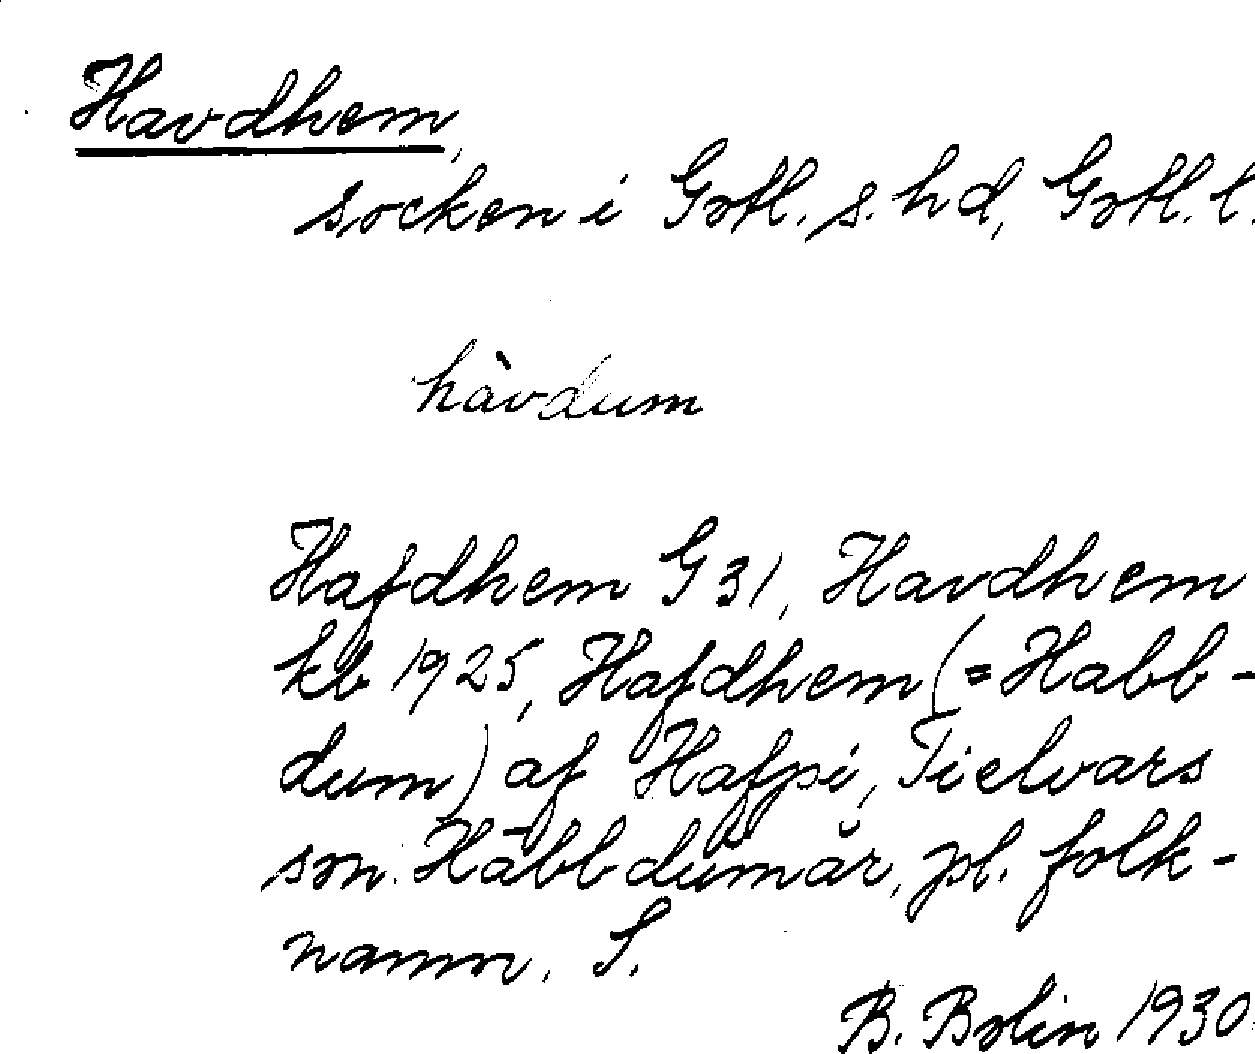 Havdhem,
socken i Gotl. s. hd, Gotl. l.
hàvdum
Hafdhem G 31, Havdhem
kb 1925, Hafdhem (= Habb-
dum) af Hafpi, Tielvars
son. Hābbdŭmăr, pl. folk-
namn. S.
B. Bolin 1930.